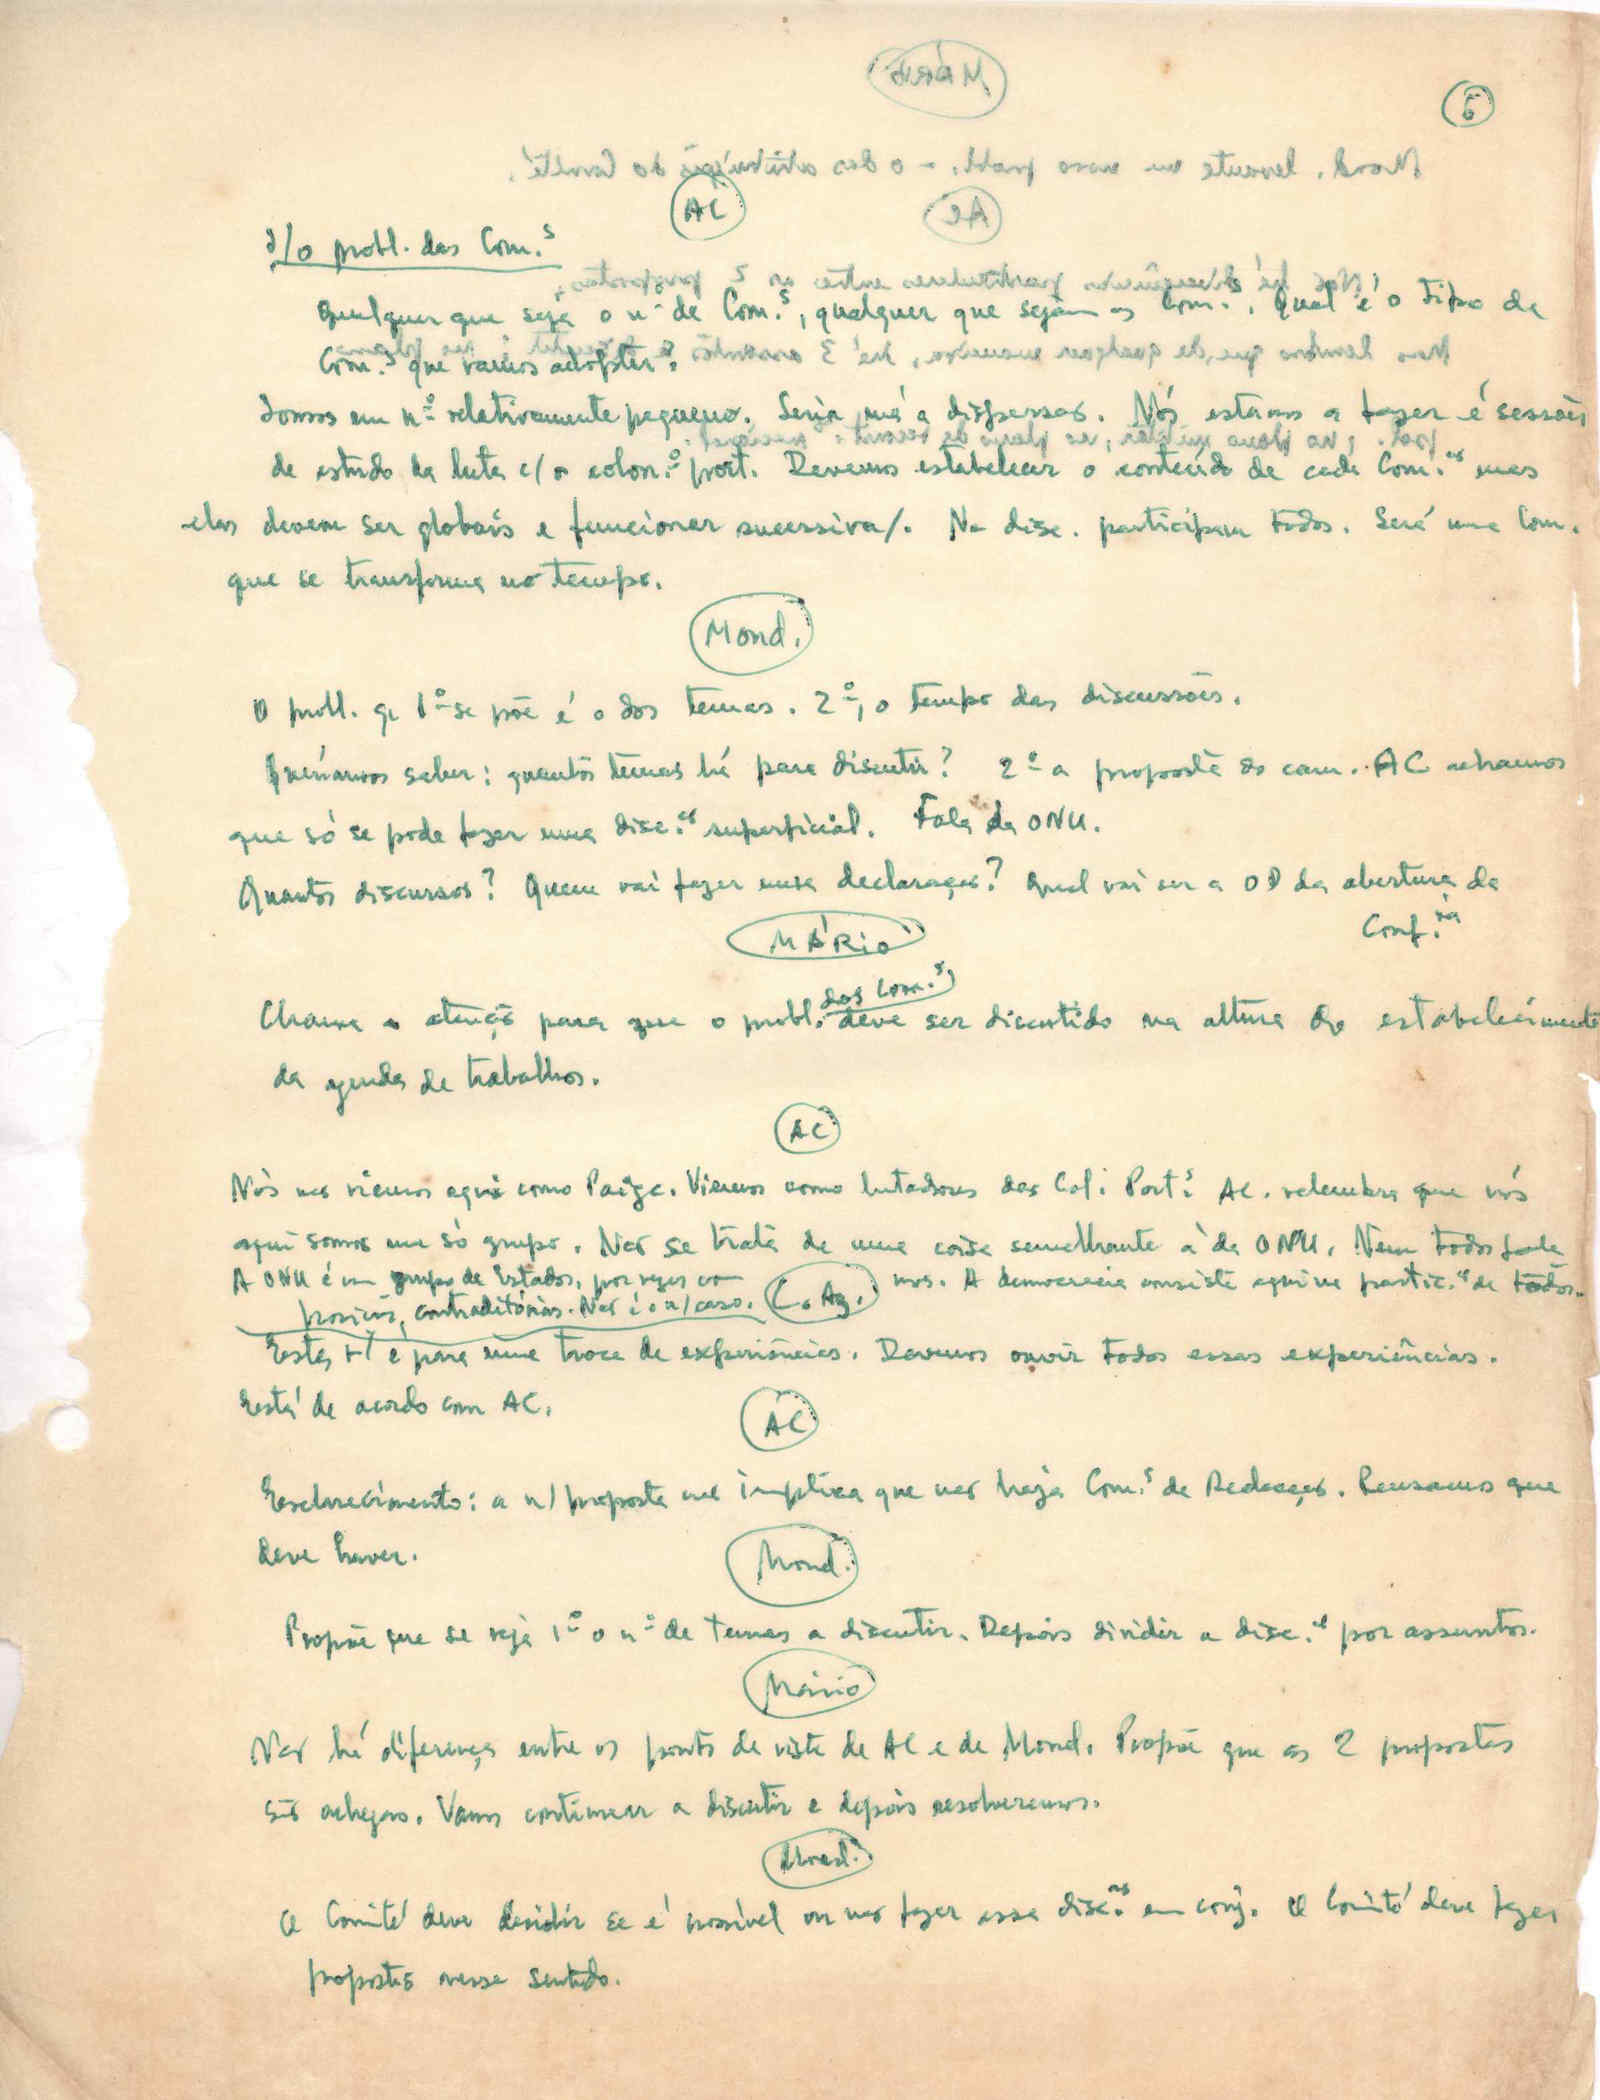 6
AC
s/o probl. das Com.s
Qualquer que seja o nº de Com.s, qualquer que sejam as Com.s. Qual é o tipo de
Com.s que vamos adoptar?
Somos em nº relativamente pequeno. Seria má a dispersão. Nós estamos a fazer é sessões
de estudo da luta c/ o colon.º port. Devemos estabelecer o conteúdo de cada Com.ão mas
elas devem ser globais e funcionar sucessiva/. Na disc. participam todos. Será uma Com.
que se transforma no tempo.
Mond.
O probl. q 1º se põe é o dos temas. 2º, o tempo das discussões.
Queríamos saber: quantos temas há para discutir? 2º a proposta do cam. AC achamos
que só se pode fazer uma disc.ão superficial. Fala da ONU.
Quantos discursos? Quem vai fazer uma declaração? Qual vai ser a OD da abertura da
Conf.ia
MÁRIO
das Com.s
Chama a atenção para que o probl. deve ser discutido na altura do estabelecimento
da agenda de trabalhos.
AC
Nós não viemos aqui como Paigc. Viemos como lutadores das Col. Port.s AC. relembra que nós
aqui somos um só grupo. Não se trata de uma coisa semelhante à da ONU. Nem todos
A ONU é um grupo de Estados, por vezes com
posições contraditórias. Não é o n/caso. C. Az. mos. A democracia consiste aqui na partic.ão de todos.
Esta é para uma troca de experiências. Devemos ouvir todas essas experiências.
Está de acordo com AC.
AC
Esclarecimento: a n/proposta não implica que não haja Com.s de Redacção. Pensamos que
deve haver.
Mond.
Propõe que se veja 1º o nº de temas a discutir. Depois dividir a disc.ão por assuntos.
Mário
Não há diferença entre os pontos de vista de AC e de Mond. Propõe que as 2 propostas
são achegas. Vamos continuar a discutir e depois resolveremos.
Mond.
O Comité deve decidir se é possível ou não fazer essa disc.ão em conj. O Comité deve fazer
propostas nesse sentido.